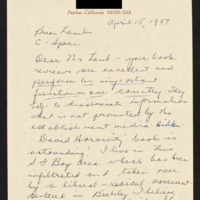 Fairfax, California 94930-
April 15, 1997
Brian Lamb
C-Span
Dear Mr Lamb - your book
reviews are excellent and
perform an important
function in our country. They
help to disseminate information
that is not promoted by the
establishment media
David Horowitz book is
astounding! I live in this
S F Bay Area which has been
infiltrated and taken over
by a liberal-radical movement
centered in Berkeley I believe